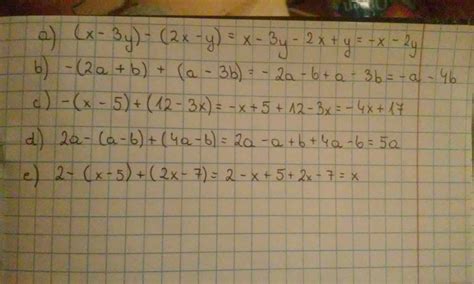 a) (x-3y)-(2x-y) = x-3y-2x+y = -x-2y
b) -(2a+b) + (a-3b) = -2a-b+a-3b = -a-4b
c) -(x-5)+(12-3x) = -x+5+12-3x = -4x+17
d) 2a-(a-b)+(4a-b) = 2a-a+b+4a-b = 5a
e) 2-(x-5)+(2x-7) = 2-x+5+2x-7 = x